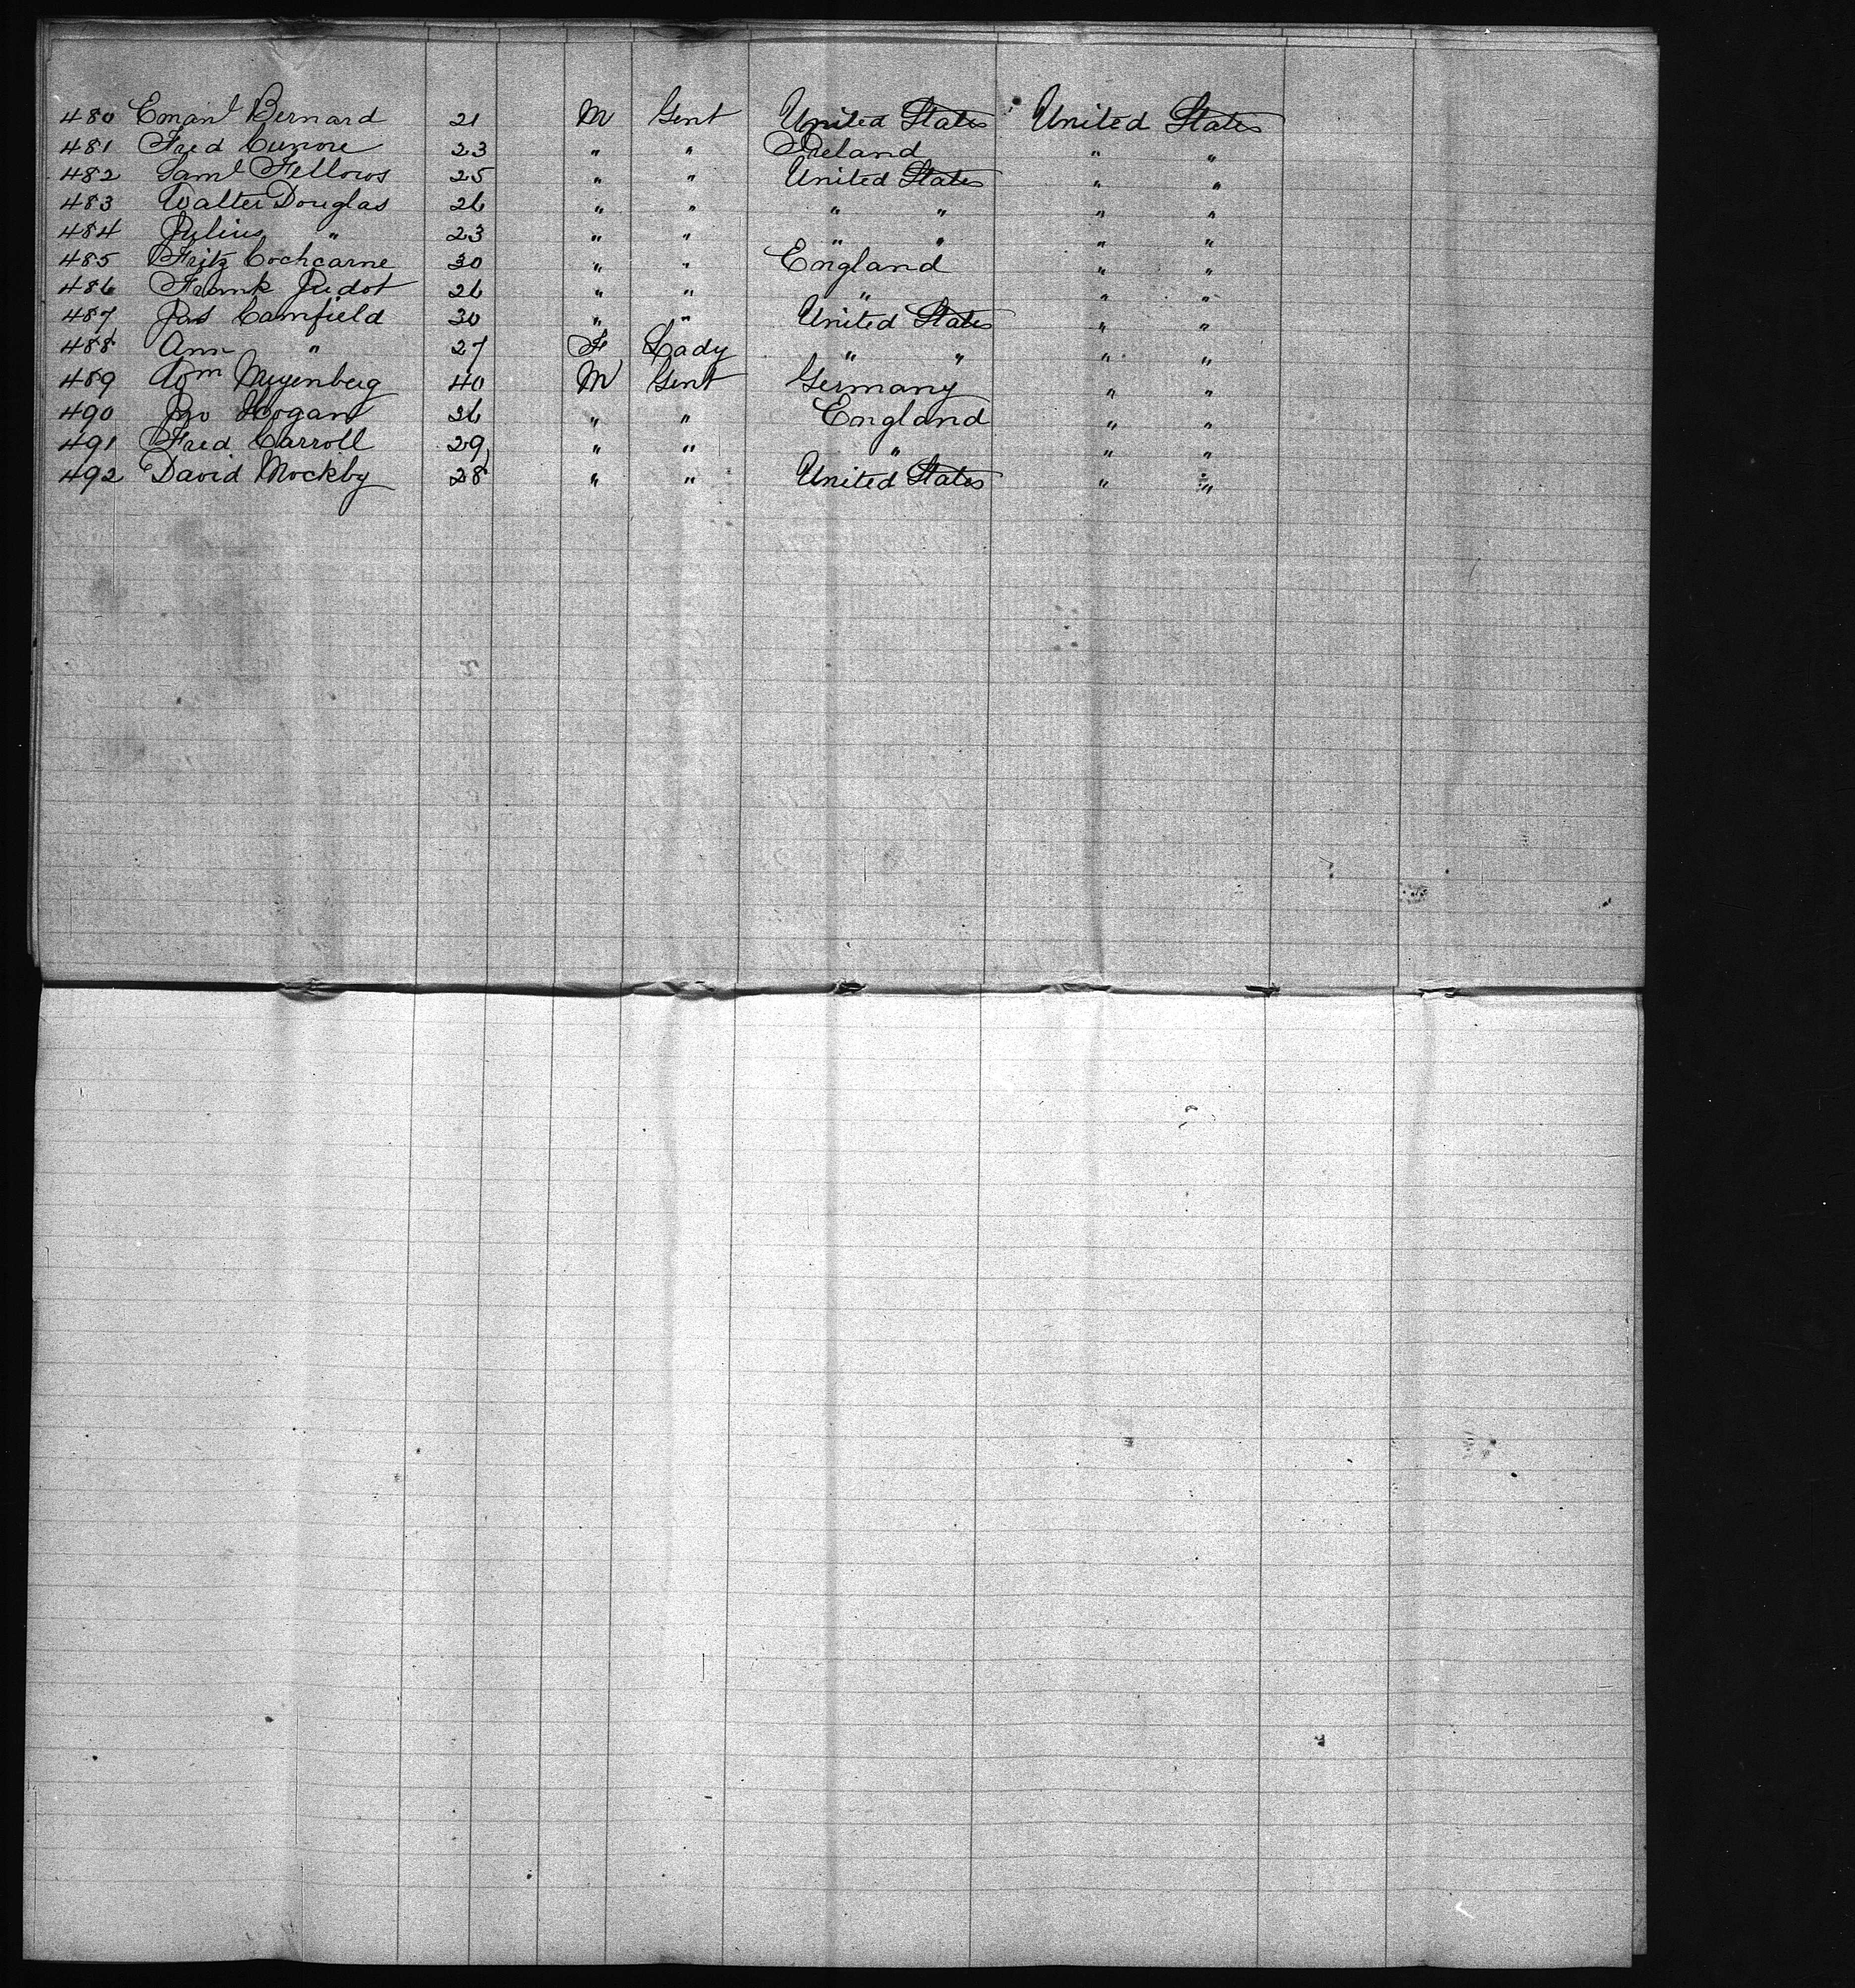 480 Emanl Bernard 21 M Gent United States United States
481 Fred 23 " " Ireland " "
482 Saml Fellows 25 " " United States " "
483 Walter Douglas 26 " " " " " "
484 Julius " 23 " " " " " "
485 Fritz Cochcarne 30 " " England " "
486 Frank Judot 26 " " " " "
487 Jas Camfield 30 " " United States " "
488 Ann " 27 F Lady " " " "
489 Wm Meyenberg 40 M Gent Germany " "
490 Jno Hogan 26 " " England " "
491 Fred Carroll 29 " " " " "
492 David Mockby 28 " " United States " "